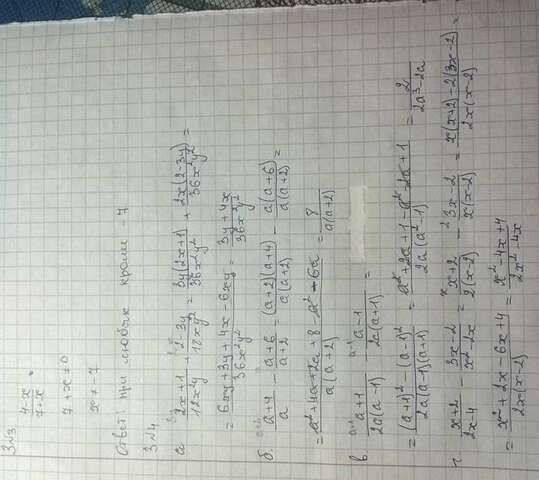 З№3
4-x/7+x .
7 + x ≠ 0
x ≠ -7
Ответ: при любых кроме -7
З№4
а (2x+1)/(12x²y) + (2-3y)/(18xy²) = 3y(2x+1)/(36x²y²) + 2x(2-3y)/(36x²y²) =
= (6xy+3y+4x-6xy)/(36x²y²) = (3y+4x)/(36x²y²)
б. (a+4)/a - (a+6)/(a+2) = (a+2)(a+4)/(a(a+2)) - a(a+6)/(a(a+2)) =
= (a²+4a+2a+8-a²-6a)/(a(a+2)) = 8/(a(a+2))
в (a+1)/(2a(a-1)) - (a-1)/(2a(a+1)) =
= ((a+1)²-(a-1)²)/(2a(a-1)(a+1)) = (a²+2a+1-a²-2a+1)/(2a(a²-1)) = 2/(2a³-2a)
г. (x+2)/(2x-4) - (3x-2)/(x²-2x) = x (x+2)/(2(x-2)) - 2 (3x-2)/(x(x-2)) = (x(x+2)-2(3x-2))/(2x(x-2)) =
= (x²+2x-6x+4)/(2x(x-2)) = (x²-4x+4)/(2x²-4x)